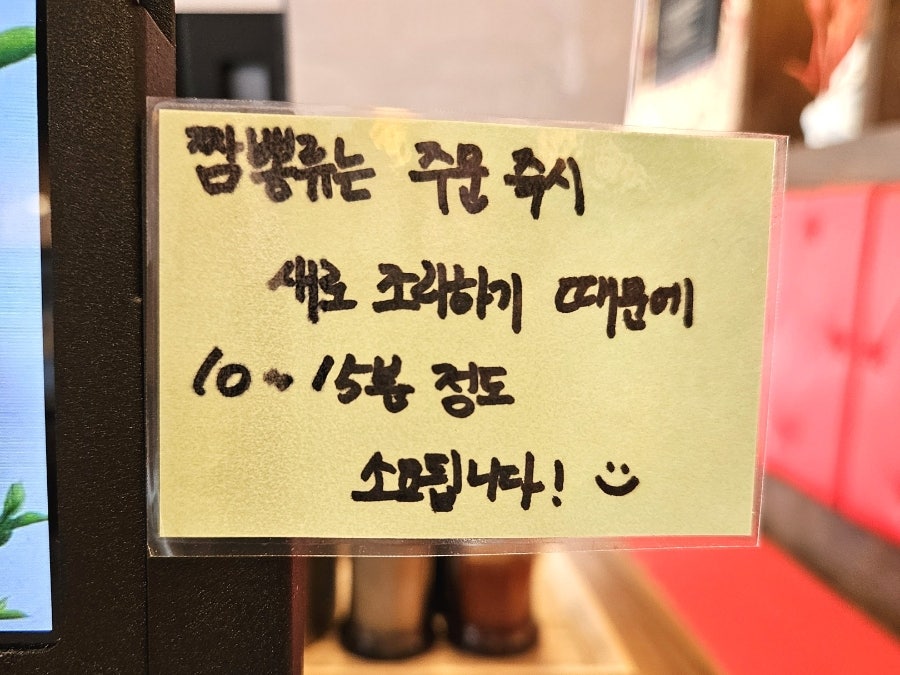 짬뽕류는 주문 즉시
새로 조리하기 때문에
10~15분 정도
소요됩니다! :)